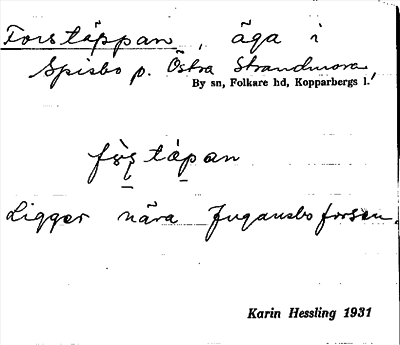 Forstäppan, äga i
Spisbo p. Östra Strandmora,
By sn, Folkare hd, Kopparbergs l.
tȧpan
Ligger nära Jugansbo forsen.
Karin Hessling 1931